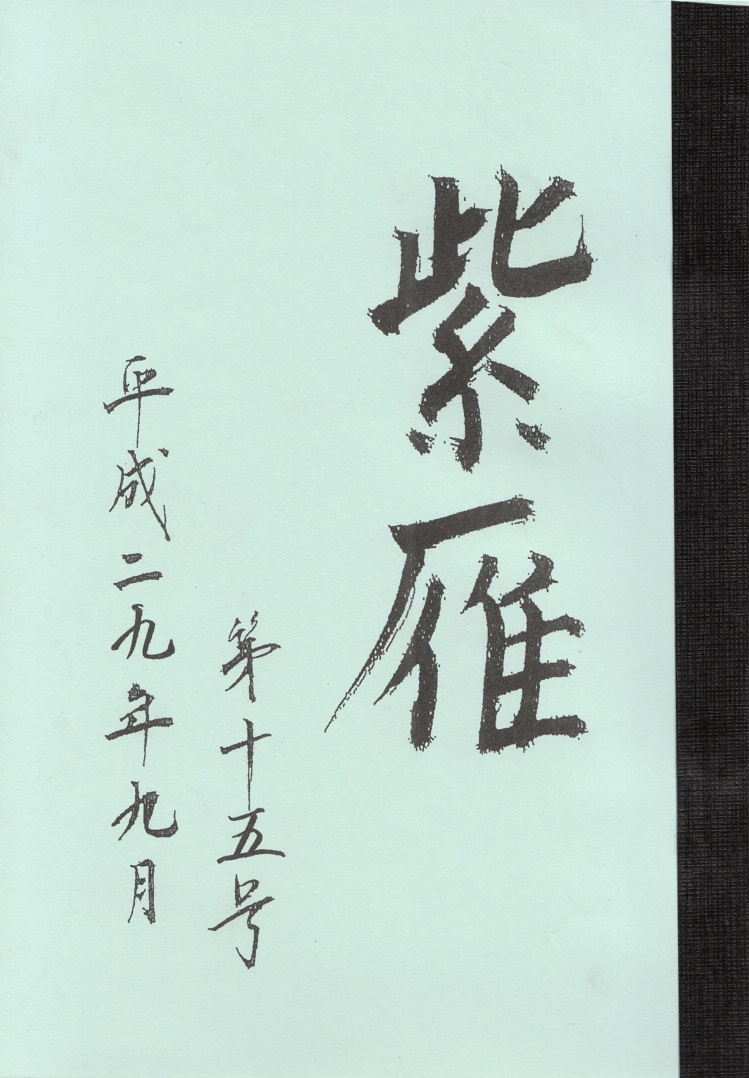 紫雁
第十五号
平成二九年九月